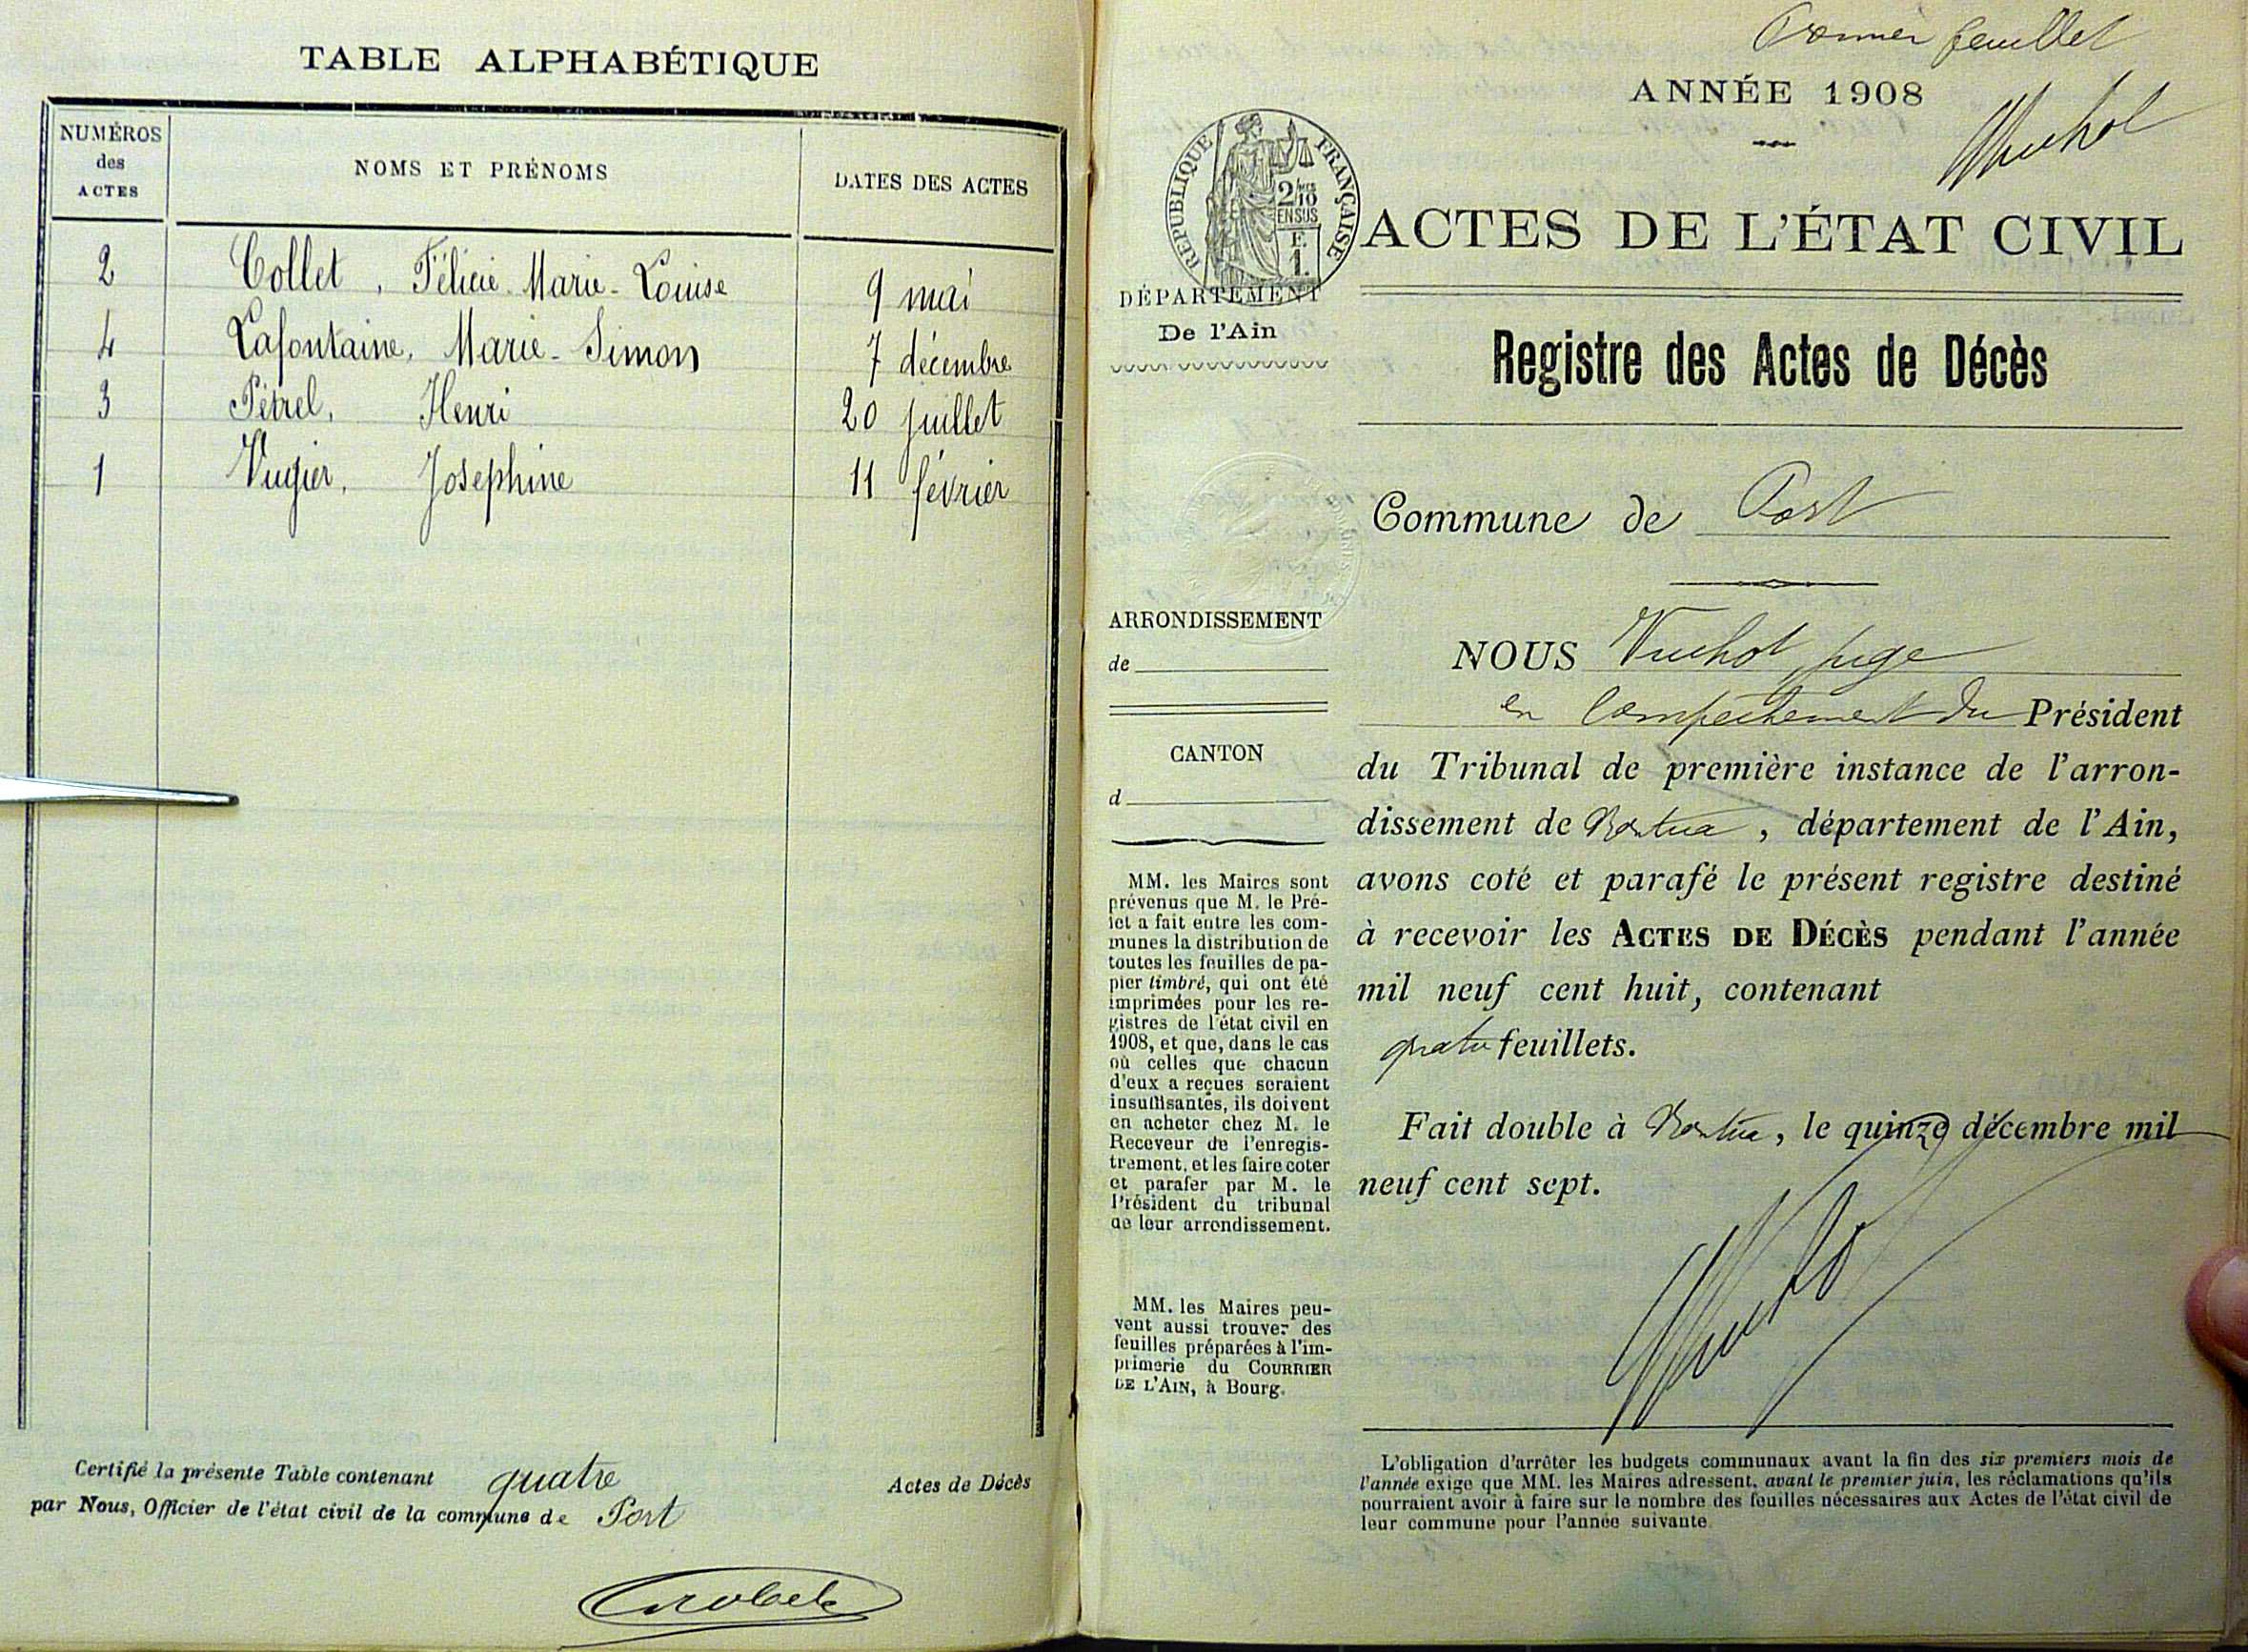 TABLE ALPHABÉTIQUE
NUMÉROS
des
ACTES
NOMS ET PRÉNOMS
DATES DES ACTES
2 Collet, Félicie Marie-Louise 9 mai
4 Lafontaine, Marie-Simon 7 décembre
3 Pétrel, Henri 20 juillet
1 Vugier, Josephine 11 février
Certifié la présente Table contenant quatre Actes de Décès
par Nous, Officier de l'état civil de la commune de Port
Premier feuillet
ANNÉE 1908
Vuchot
RÉPUBLIQUE FRANÇAISE
2/10
EN SUS
F.
1.
ACTES DE L'ÉTAT CIVIL
DÉPARTEMENT
De l'Ain
Registre des Actes de Décès
Commune de Port
ARRONDISSEMENT
de
CANTON
d
MM. les Maires sont
prévenus que M. le Pré-
fet a fait entre les com-
munes la distribution de
toutes les feuilles de pa-
pier timbré, qui ont été
imprimées pour les re-
gistres de l'état civil en
1908, et que, dans le cas
où celles que chacun
d'eux a reçues seraient
insuffisantes, ils doivent
en acheter chez M. le
Receveur de l'enregis-
trement, et les faire coter
et parafer par M. le
Président du tribunal
de leur arrondissement.
MM. les Maires peu-
vent aussi trouver des
feuilles préparées à l'im-
primerie du COURRIER
DE L'AIN, à Bourg.
NOUS Vuchot, juge
en l'empêchement du Président
du Tribunal de première instance de l'arron-
dissement de Nantua, département de l'Ain,
avons coté et parafé le présent registre destiné
à recevoir les ACTES DE DÉCÈS pendant l'année
mil neuf cent huit, contenant
quatre feuillets.
Fait double à Nantua, le quinze décembre mil
neuf cent sept.
Vuchot
L'obligation d'arrêter les budgets communaux avant la fin des six premiers mois de
l'année exige que MM. les Maires adressent, avant le premier juin, les réclamations qu'ils
pourraient avoir à faire sur le nombre des feuilles nécessaires aux Actes de l'état civil de
leur commune pour l'année suivante.